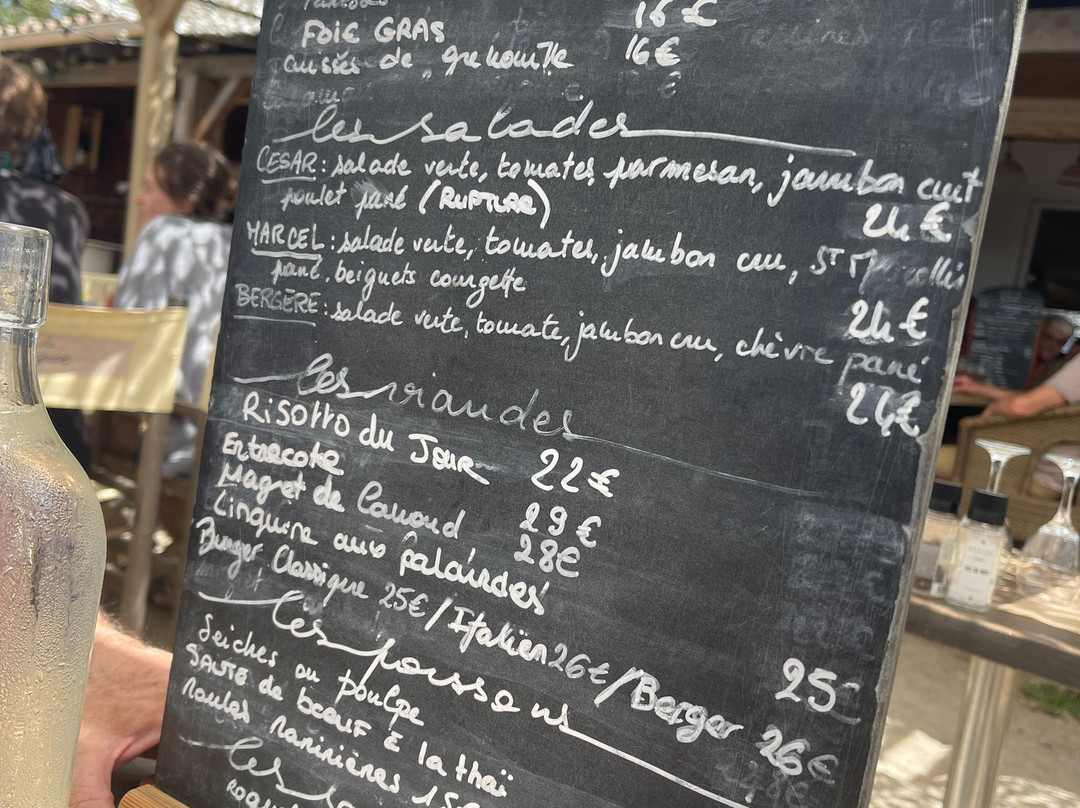 16€
FOIE GRAS
cuisses de grenouille 16€
les salades
CESAR: salade verte, tomates, parmesan, jambon cuit
poulet pané (RUPTURE) 24€
MARCEL: salade verte, tomates, jambon cru, ST
pané, beignets courgette 24€
BERGÈRE: salade verte, tomate, jambon cru, chèvre pané
24€
les viandes
Risotto du Jour 22€
Entrecote 29€
Magret de Canard 28€
Linguine aux palourdes 25€
Burger Classique 25€/Italien 26€/Berger 26€
les poissons
Seiches ou poulpe
SAUTE de bœuf à la thaï
moules marinières
les